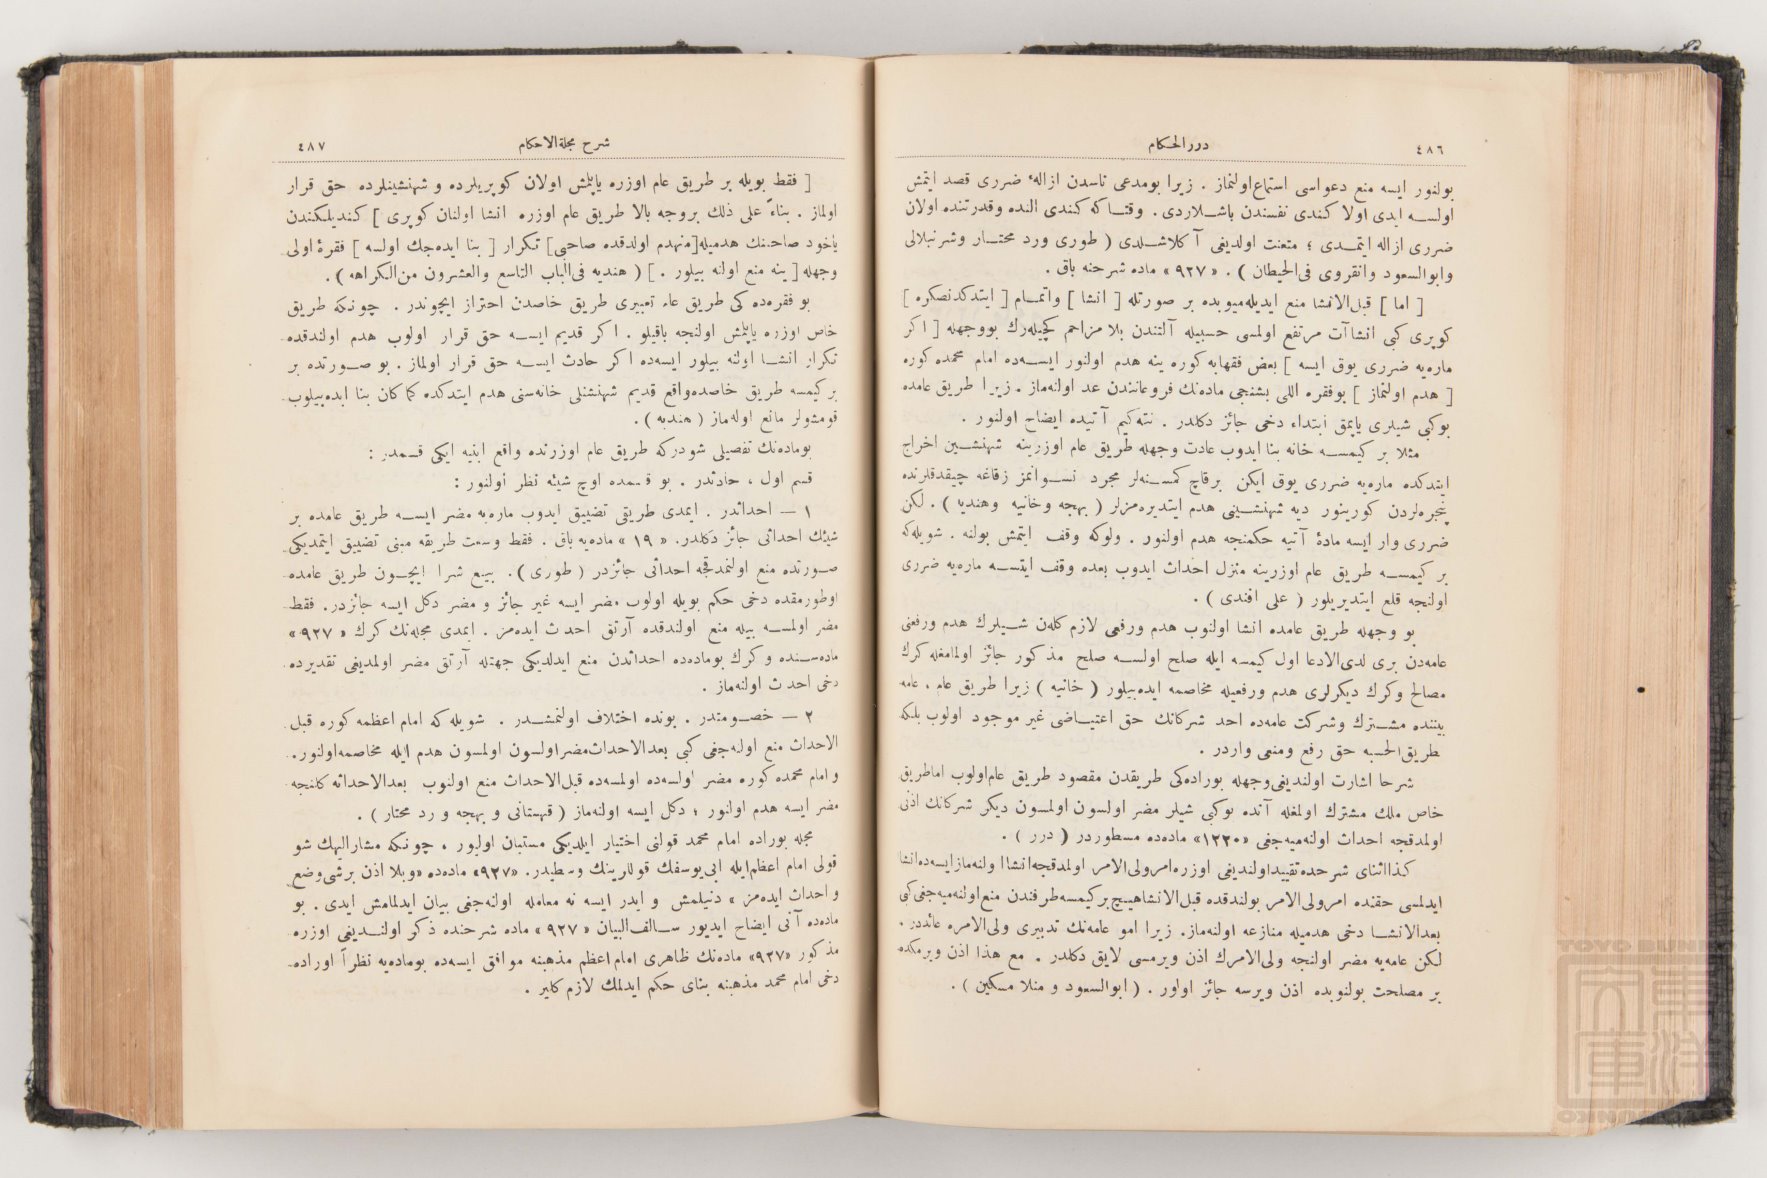 ٤٨٦
دررالحكام
بولنور ايسه منع دعواسى استماع اولنماز . زيرا بومدعى ناسدن ازالهٔ ضررى قصد ايتمش
اولسه ايدى اولا كندى نفسندن باشلاردى . وقتاكه كندى النده وقدرتنده اولان
ضررى ازاله ايتمدى ؛ متعنت اولديغى آكلاشلدى ( طورى ورد محتار وشرنبلالى
وابوالسعود وانقروى فى الحيطان ) . «٩٢٧» ماده شرحنه باق .
[ اما ] قبل الانشا منع ايديله‌ميوبده بر صورتله [ انشا ] واتمام [ ايتدكدنصكره ]
كوپرى كبى انشاآت مرتفع اولمسى حسبيله آلتندن بلا مزاحم كچيله‌رك بووجهله [ اكر
ماره‌يه ضررى يوق ايسه ] بعض فقهايه كوره ينه هدم اولنور ايسه‌ده امام محمده كوره
[ هدم اولنماز ] بوفقره اللى بشنجى ماده‌نك فروعاتندن عد اولنه‌ماز . زيرا طريق عامده
بوكبى شيلرى ياپمق ابتداء دخى جائز دكلدر . نته‌كيم آتيده ايضاح اولنور .
مثلا بر كيمسه خانه بنا ايدوب عادت وجهله طريق عام اوزرينه شهنشين اخراج
ايتدكده ماره‌يه ضررى يوق ايكن برقاچ كمسنه‌لر مجرد نسوانمز زقاغه چيقدقلرنده
پنجره‌لردن كورينور ديه شهنشينى هدم ايتديره‌مزلر ( بهجه وخانيه وهنديه ) . لكن
ضررى وار ايسه مادهٔ آتيه حكمنجه هدم اولنور . ولوكه وقف ايتمش بولنه . شويله‌كه
بر كيمسه طريق عام اوزرينه منزل احداث ايدوب بعده وقف ايتسه ماره‌يه ضررى
اولنجه قلع ايتديريلور ( على افندى ) .
بو وجهله طريق عامده انشا اولنوب هدم ورفعى لازم كلن شيلرك هدم ورفعنى
عامه‌دن برى لدى الادعا اول كيمسه ايله صلح اولسه صلح مذكور جائز اولمامغله كرك
مصالح وكرك ديكرلرى هدم ورفعيله مخاصمه ايده‌بيلور ( خانيه ) زيرا طريق عام ، عامه
بيننده مشترك وشركت عامه‌ده احد شركانك حق اعتياضى غير موجود اولوب بلكه
طريق الحسبه حق رفع ومنعى واردر .
شرحا اشارت اولنديغى وجهله بوراده‌كى طريقدن مقصود طريق عام اولوب اما طريق
خاص ملك مشترك اولمغله آنده بوكبى شيلر مضر اولسون اولمسون ديكر شركانك اذنى
اولمدقجه احداث اولنه‌ميه‌جغى «١٢٢٠» ماده‌ده مسطوردر ( درر ) .
كذا اثناى شرحده تقييد اولنديغى اوزره امر ولى الامر اولمدقجه انشا اولنه‌ماز ايسه‌ده انشا
ايدلمسى حقنده امر ولى الامر بولندقده قبل الانشا هيچ بر كيمسه طرفندن منع اولنه‌ميه‌جغى كبى
بعد الانشا دخى هدميله منازعه اولنه‌ماز . زيرا امور عامه‌نك تدبيرى ولى الامره عائددر .
لكن عامه‌يه مضر اولنجه ولى الامرك اذن ويرمسى لايق دكلدر . مع هذا اذن ويرمكده
بر مصلحت بولنوبده اذن ويرسه جائز اولور . ( ابوالسعود و منلا مسكين ) .
شرح مجلة الاحكام
٤٨٧
[ فقط بويله بر طريق عام اوزره ياپلمش اولان كوپريلرده و شهنشينلرده حق قرار
اولماز . بناءً على ذلك بروجه بالا طريق عام اوزره انشا اولنان كوپرى ] كنديلكندن
ياخود صاحبنك هدميله [ منهدم اولدقده صاحبى ] تكرار [ بنا ايده‌جك اولسه ] فقرهٔ اولى
وجهله [ ينه منع اولنه بيلور . ] ( هنديه فى الباب التاسع والعشرون من الكراهه ) .
بو فقره‌ده‌كى طريق عام تعبيرى طريق خاصدن احتراز ايچوندر . چونكه طريق
خاص اوزره ياپلمش اولنجه باقيلور . اكر قديم ايسه حق قرار اولوب هدم اولندقده
تكرار انشا اولنه بيلور ايسه‌ده اكر حادث ايسه حق قرار اولماز . بو صورتده بر
بر كيمسه طريق خاصده واقع قديم شهنشنلى خانه‌سنى هدم ايتدكده كما كان بنا ايده‌بيلوب
قومشولر مانع اوله‌ماز ( هنديه ) .
بوماده‌نك تفصيلى شودركه طريق عام اوزرنده واقع ابنيه ايكى قسمدر :
قسم اول ، حادثدر . بو قسمده اوچ شيئه نظر اولنور :
١ — احداثدر . ايمدى طريقى تضييق ايدوب ماره‌يه مضر ايسه طريق عامده بر
شيئك احداثى جائز دكلدر . «١٩» ماده‌يه باق . فقط وسعت طريقه مبنى تضييق ايتمديكى
صورتده منع اولنمدقجه احداثى جائزدر ( طورى ) . بيع شرا ايچون طريق عامده
اوطورمقده دخى حكم بويله اولوب مضر ايسه غير جائز و مضر دكل ايسه جائزدر . فقط
مضر اولمسه بيله منع اولندقده آرتق احداث ايده‌مز . ايمدى مجله‌نك كرك «٩٢٧»
ماده‌سنده وكرك بوماده‌ده احداثدن منع ايدلديكى جهتله آرتق مضر اولمديغى تقديرده
دخى احداث اولنه‌ماز .
٢ — خصومتدر . بونده اختلاف اولنمشدر . شويله‌كه امام اعظمه كوره قبل
الاحداث منع اولنه‌جغى كبى بعد الاحداث مضر اولسون اولمسون هدم ايله مخاصمه اولنور .
وامام محمده كوره مضر اولسه‌ده اولمسه‌ده قبل الاحداث منع اولنوب بعد الاحداثه كلنجه
مضر ايسه هدم اولنور ؛ دكل ايسه اولنه‌ماز ( قهستانى و بهجه و رد محتار ) .
مجله بوراده امام محمد قولنى اختيار ايلديكى مستبان اوليور ، چونكه مشار اليهك شو
قولى امام اعظم ايله ابى يوسفك قوللرينك وسطيدر . «٩٢٧» ماده‌ده «وبلا اذن برشى وضع
و احداث ايده‌مز» دنيلمش و ايدر ايسه نه معامله اولنه‌جغى بيان ايدلمامش ايدى . بو
ماده‌ده آنى ايضاح ايديور سالف البيان «٩٢٧» ماده شرحنده ذكر اولنديغى اوزره
مذكور «٩٢٧» ماده‌نك ظاهرى امام اعظم مذهبنه موافق ايسه‌ده بوماده‌يه نظراً اوراده
دخى امام محمد مذهبنه بناى حكم ايدلمك لازم كلير .
TOYO BUNKO